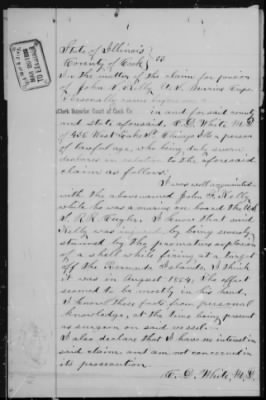 State of Illinois
County of Cook ss
In the matter of the claim for pension
of John A Kelly U.S. Marine Corps
Personally came before me a
Clerk Superior Court of Cook Co. in and for said county
and State aforesaid. R. D. White M.D.
of 436 West Lake St Chicago Ills a person
of lawful age, who being duly sworn
declares in relation to the aforesaid
claim as follows.
I was well acquainted
with the above named John A. Kelly
while he was a marine on board the U.S.
S. R.R. Cuyler. I know that said
Kelly was injured by being severely
stunned by the premature explosion
of a shell while firing at a target
off the Bermuda Islands. I think
it was in August 1864. The effect
seemed to be mostly in his head.
I know these facts from personal
knowledge, at the time being present
as surgeon on said vessel.
I also declare that I have no interest in
said claim and am not concerned in
its prosecution.
R. D. White, M.D.